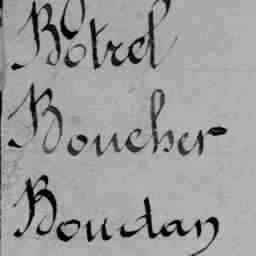 Botrel
Boucher
Boudan